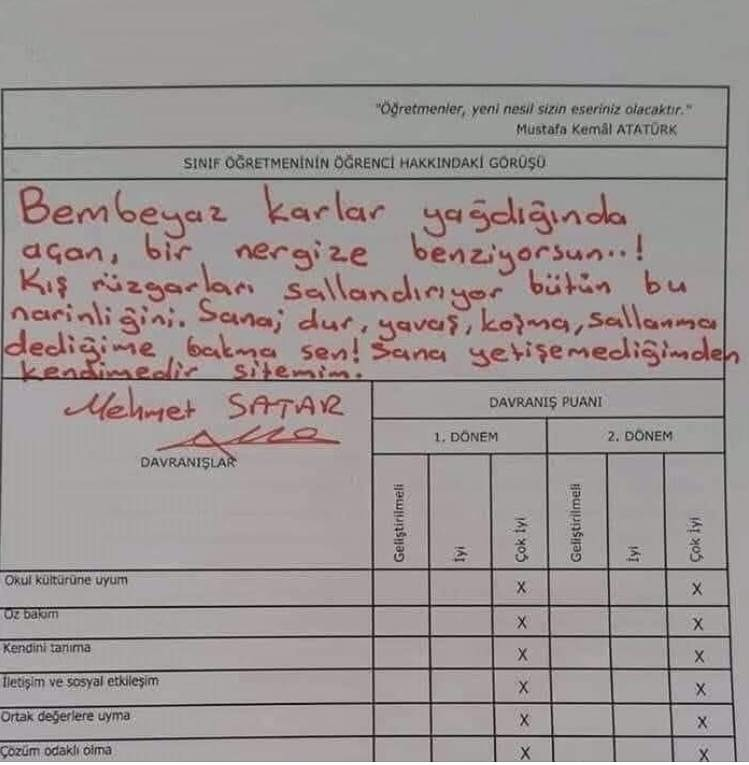 "Öğretmenler, yeni nesil sizin eseriniz olacaktır."
Mustafa Kemâl ATATÜRK
SINIF ÖĞRETMENİNİN ÖĞRENCİ HAKKINDAKİ GÖRÜŞÜ
Bembeyaz karlar yağdığında
açan, bir nergize benziyorsun..!
Kış rüzgarları sallandırıyor bütün bu
narinliğini. Sana; dur, yavaş, koşma, sallanma
dediğime bakma sen! Sana yetişemediğimden
kendimedir sitemim.
Mehmet SATAR
DAVRANIŞLAR
DAVRANIŞ PUANI
1. DÖNEM
2. DÖNEM
Geliştirilmeli
İyi
Çok İyi
Geliştirilmeli
İyi
Çok İyi
Okul kültürüne uyum X X
Öz bakım X X
Kendini tanıma X X
İletişim ve sosyal etkileşim X X
Ortak değerlere uyma X X
Çözüm odaklı olma X X